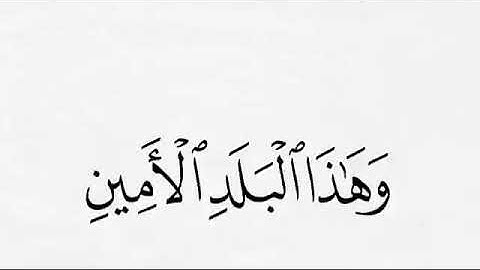 وَهَٰذَا ٱلْبَلَدِ ٱلْأَمِينِ